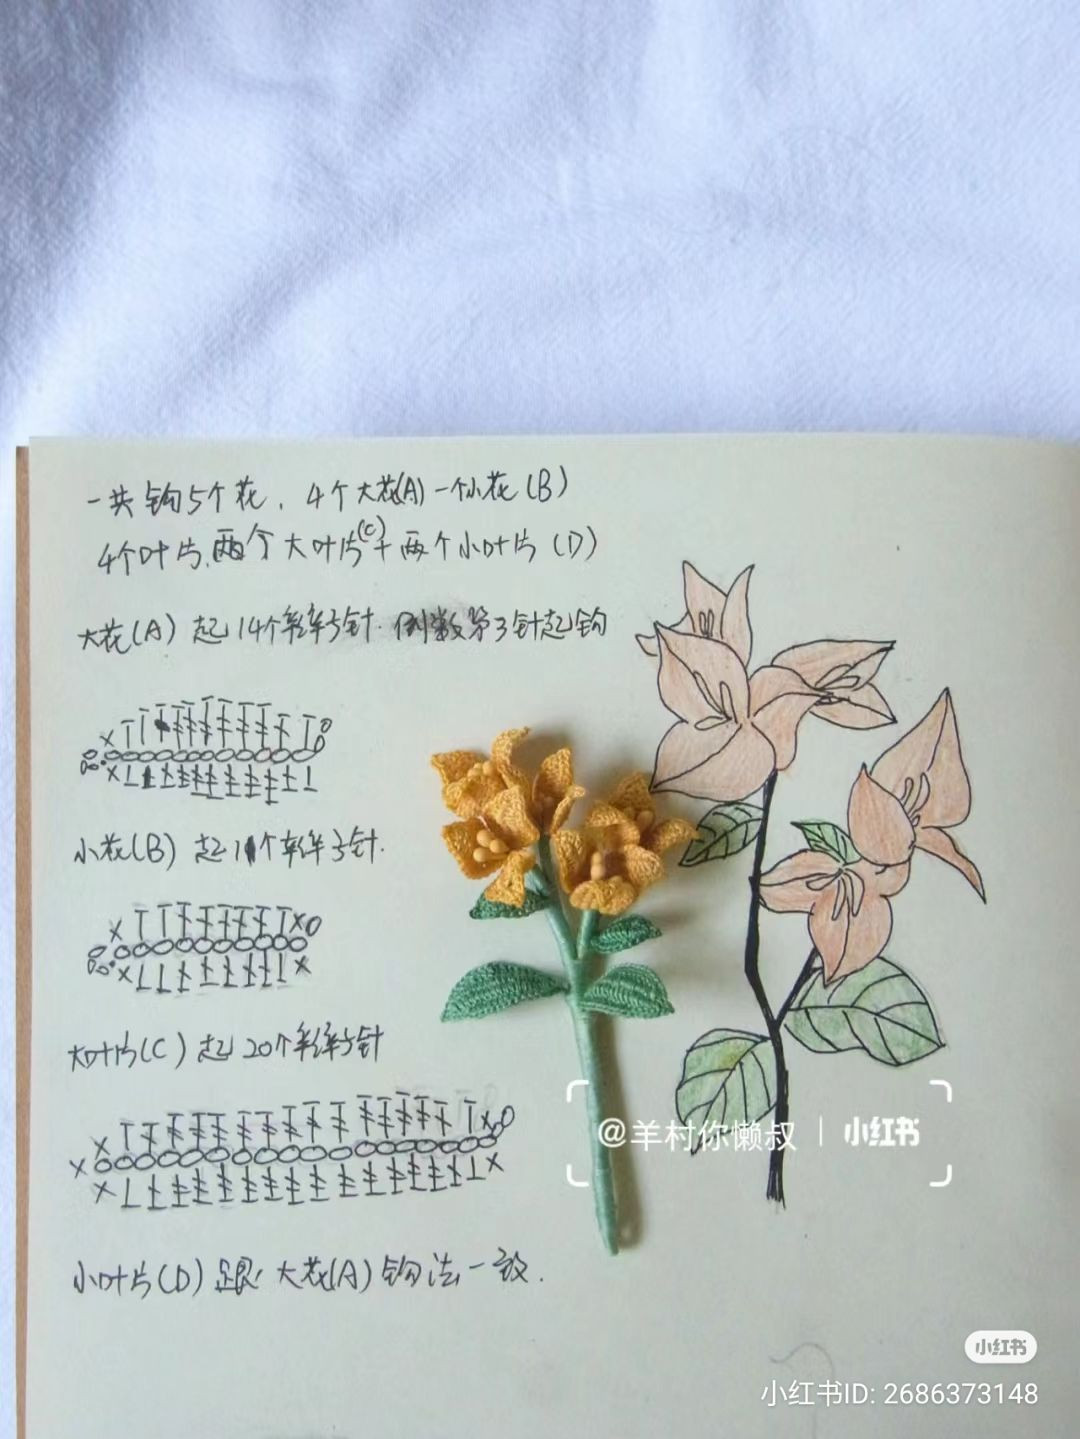 一共钩5个花，4个大花(A)一个小花(B)
4个叶片，两个大叶片(C)+两个小叶片(D)
大花(A)起14个辫子针. 倒数第3针起钩
小花(B)起11个辫子针.
大叶片(C)起20个辫子针
@羊村你懒叔 | 小红书
小叶片(D)跟大花(A)钩法一致.
小红书
小红书ID: 2686373148